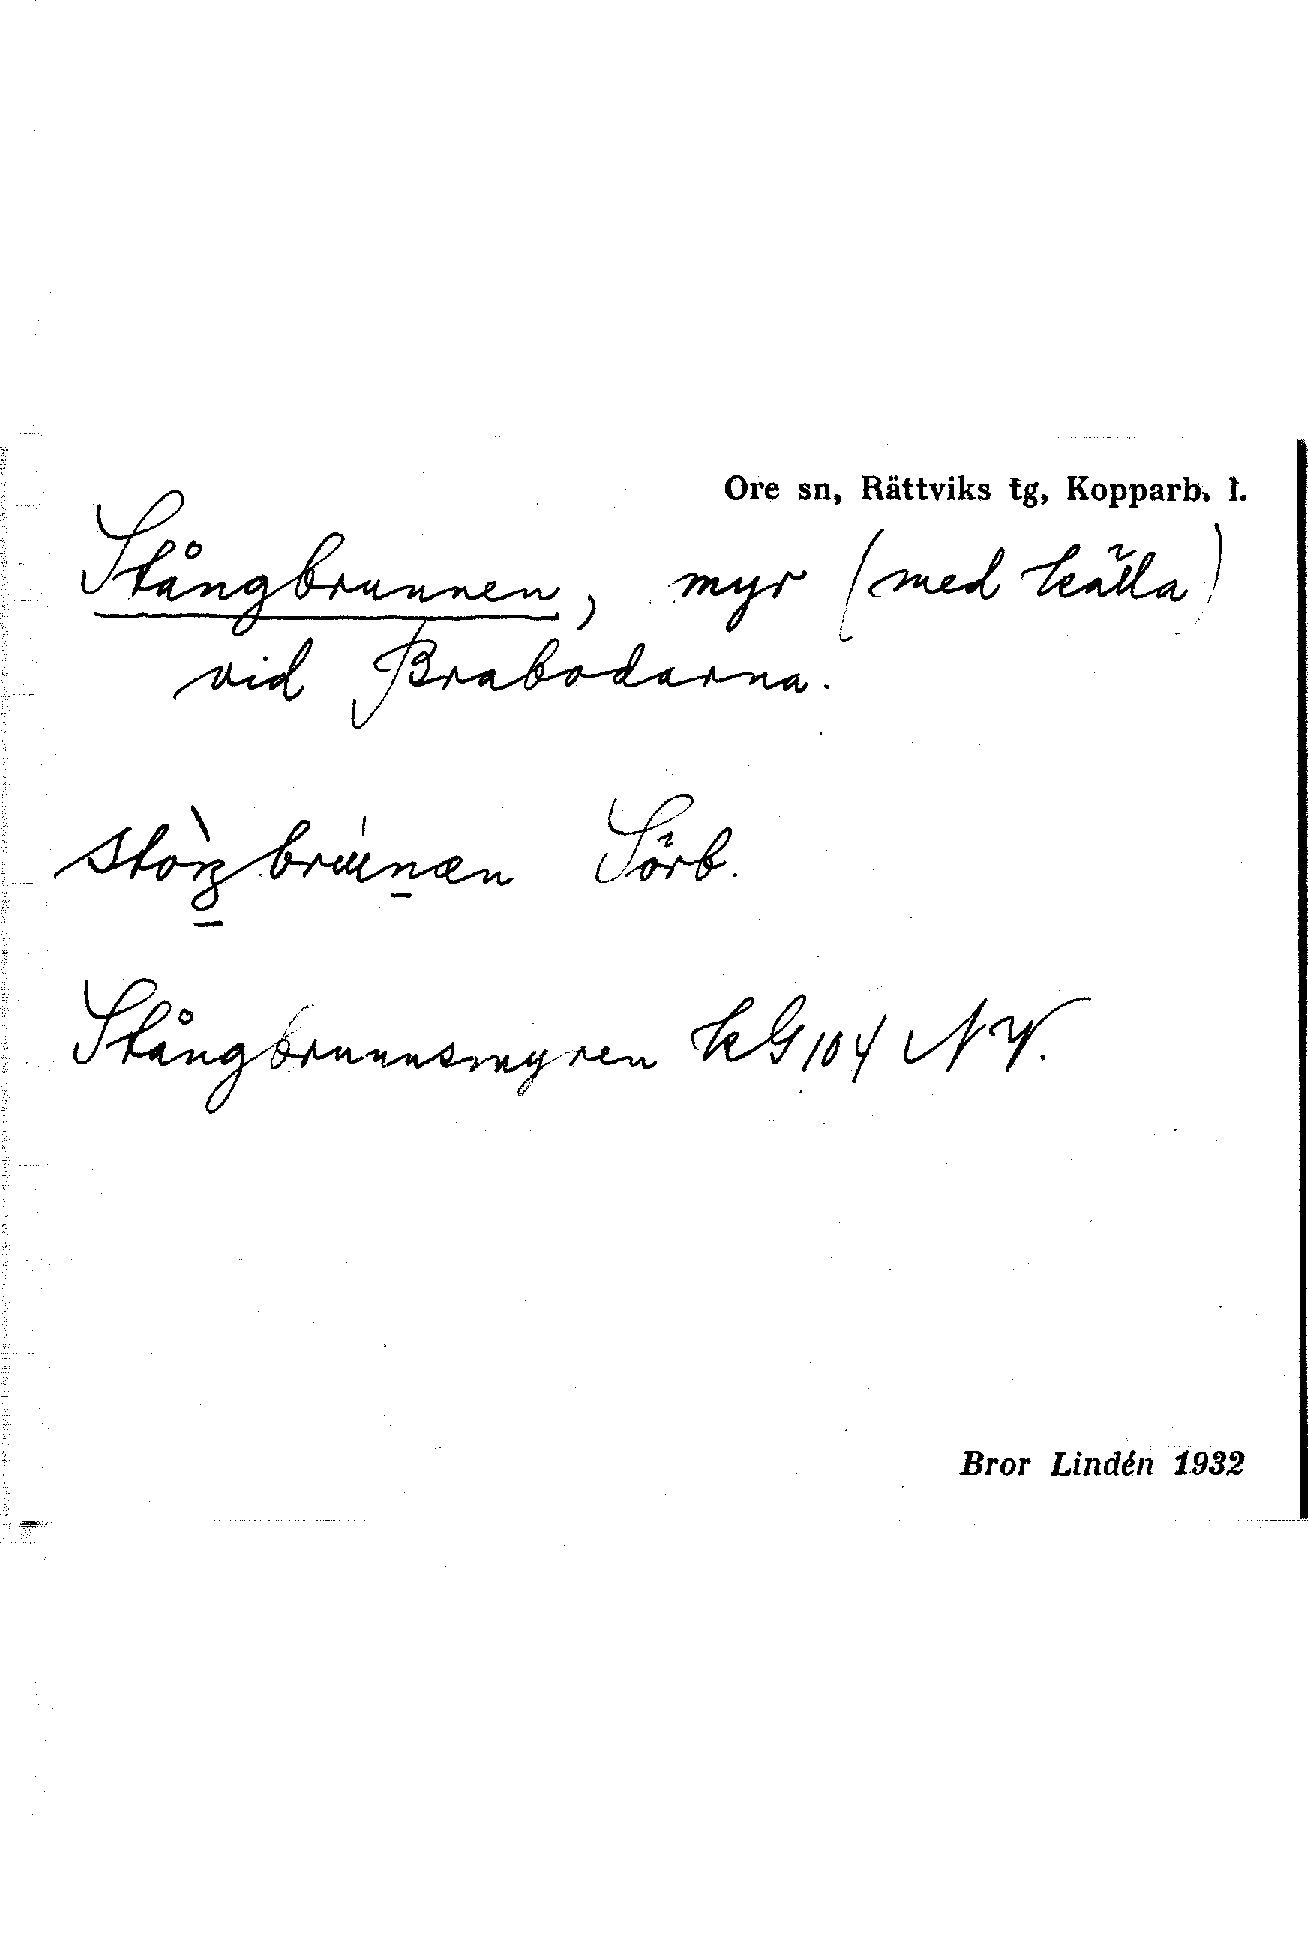 Ore sn, Rättviks tg, Kopparb. l.
Stångbrunnen, myr (med källa)
vid Brabodarna.
Sörb.
Stångbrunnsmyren kG 104 NV.
Bror Lindén 1932